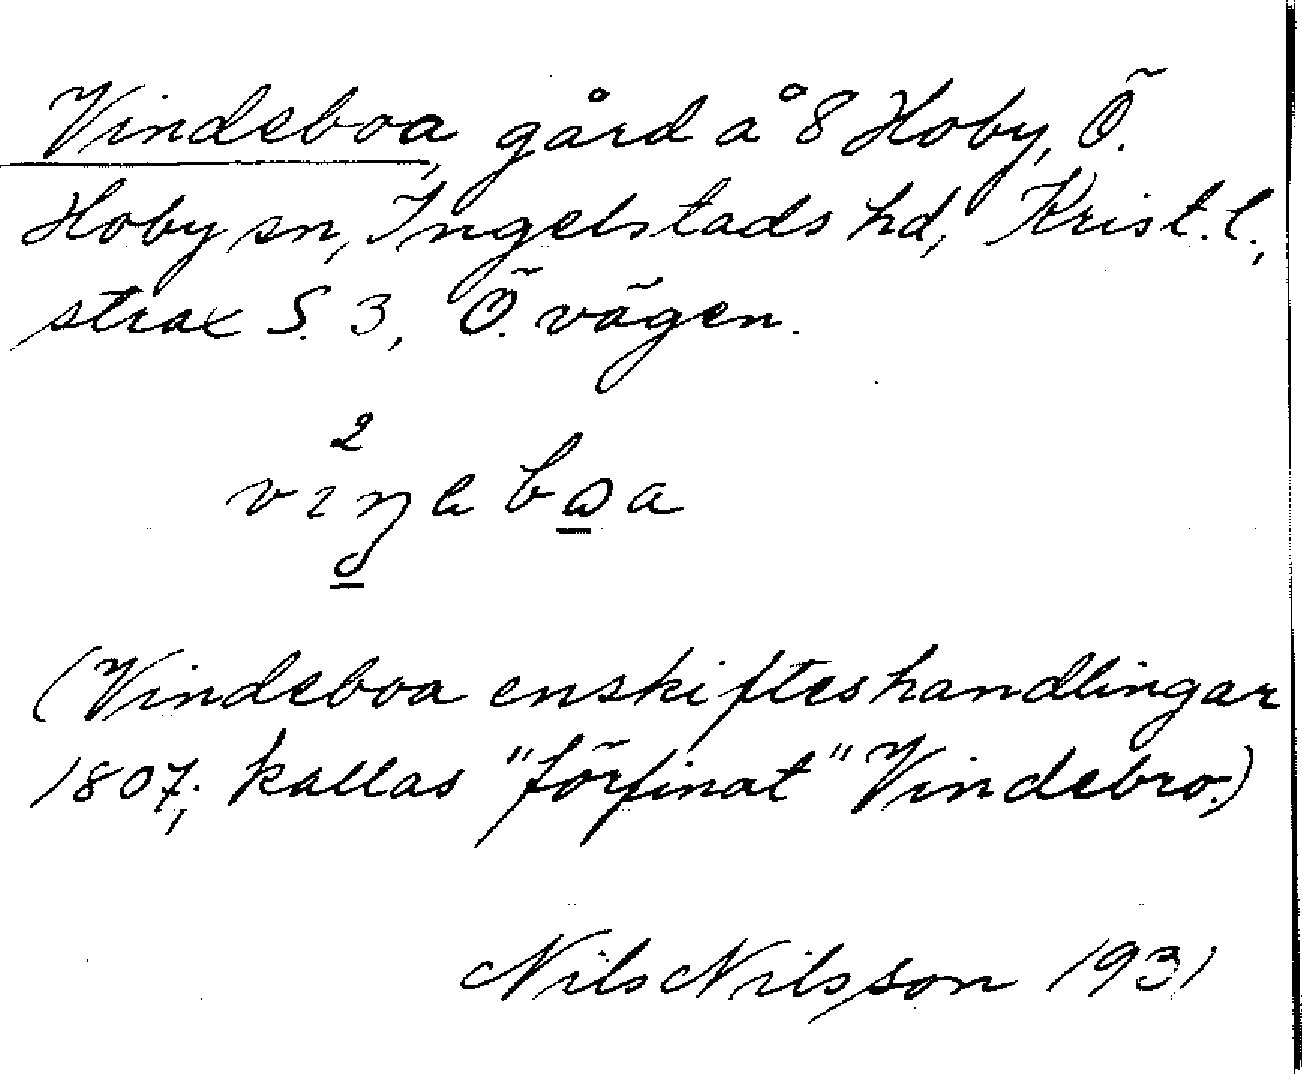 Vindeboa, gård å 8 Hoby, Ö.
Hoby sn, Ingelstads hd, Krist. l.,
strax S. 3, Ö. vägen.
(Vindeboa enskifteshandlingar
1807; kallas "förfinat" Vindebro.)
Nils Nilsson 1931